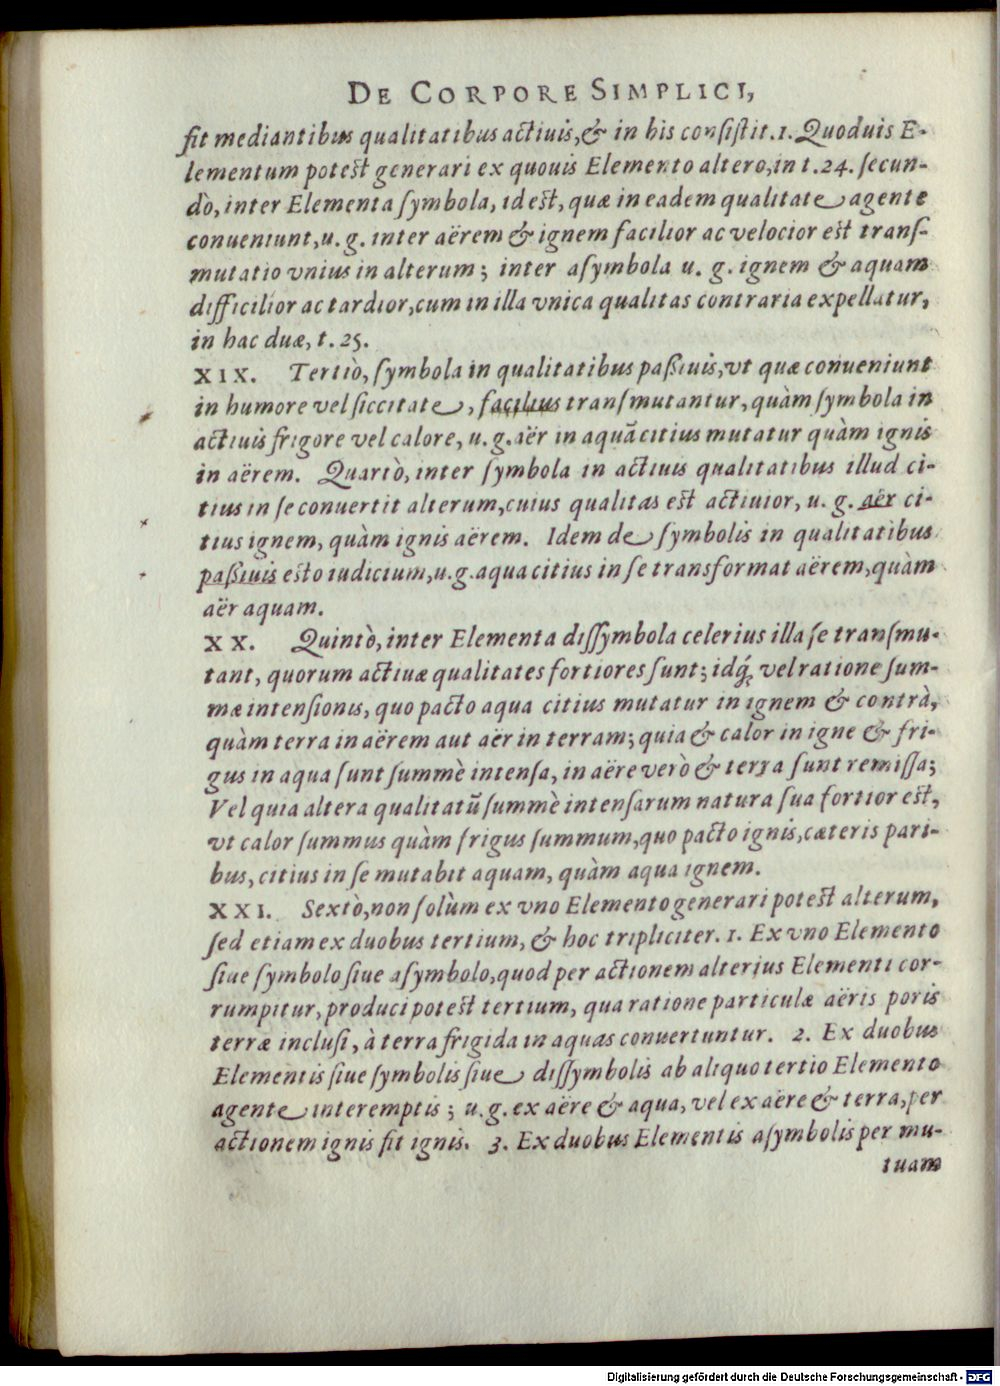 DE CORPORE SIMPLICI,
fit mediantibus qualitatibus actiuis, & in his consistit. 1. Quoduis E-
lementum potest generari ex quouis Elemento altero, in t. 24. secun-
dò, inter Elementa symbola, id est, quæ in eadem qualitate agente
conueniunt, u. g. inter aërem & ignem facilior ac velocior est trans-
mutatio vnius in alterum; inter asymbola u. g. ignem & aquam
difficilior ac tardior, cum in illa vnica qualitas contraria expellatur,
in hac duæ, t. 25.
XIX. Tertiò, symbola in qualitatibus passiuis, vt quæ conueniunt
in humore vel siccitate, facilius transmutantur, quàm symbola in
actiuis frigore vel calore, u. g. aër in aquã citius mutatur quàm ignis
in aërem. Quartò, inter symbola in actiuis qualitatibus illud ci-
tius in se conuertit alterum, cuius qualitas est actiuior, u. g. aër ci-
tius ignem, quàm ignis aërem. Idem de symbolis in qualitatibus
passiuis esto iudicium, u. g. aqua citius in se transformat aërem, quàm
aër aquam.
XX. Quintò, inter Elementa dissymbola celerius illa se transmu-
tant, quorum actiuæ qualitates fortiores sunt; idq́; vel ratione sum-
mæ intensionis, quo pacto aqua citius mutatur in ignem & contrà,
quàm terra in aërem aut aër in terram; quia & calor in igne & fri-
gus in aqua sunt summè intensa, in aëre verò & terra sunt remissa;
Vel quia altera qualitatũ summè intensarum natura sua fortior est,
vt calor summus quàm frigus summum, quo pacto ignis, cæteris pari-
bus, citius in se mutabit aquam, quàm aqua ignem.
XXI. Sextò, non solùm ex vno Elemento generari potest alterum,
sed etiam ex duobus tertium, & hoc tripliciter. 1. Ex vno Elemento
siue symbolo siue asymbolo, quod per actionem alterius Elementi cor-
rumpitur, produci potest tertium, qua ratione particulæ aëris poris
terræ inclusi, à terra frigida in aquas conuertuntur. 2. Ex duobus
Elementis siue symbolis siue dissymbolis ab aliquo tertio Elemento
agente interemptis; u. g. ex aëre & aqua, vel ex aëre & terra, per
actionem ignis fit ignis. 3. Ex duobus Elementis asymbolis per mu-
tuam
Digitalisierung gefördert durch die Deutsche Forschungsgemeinschaft - DFG